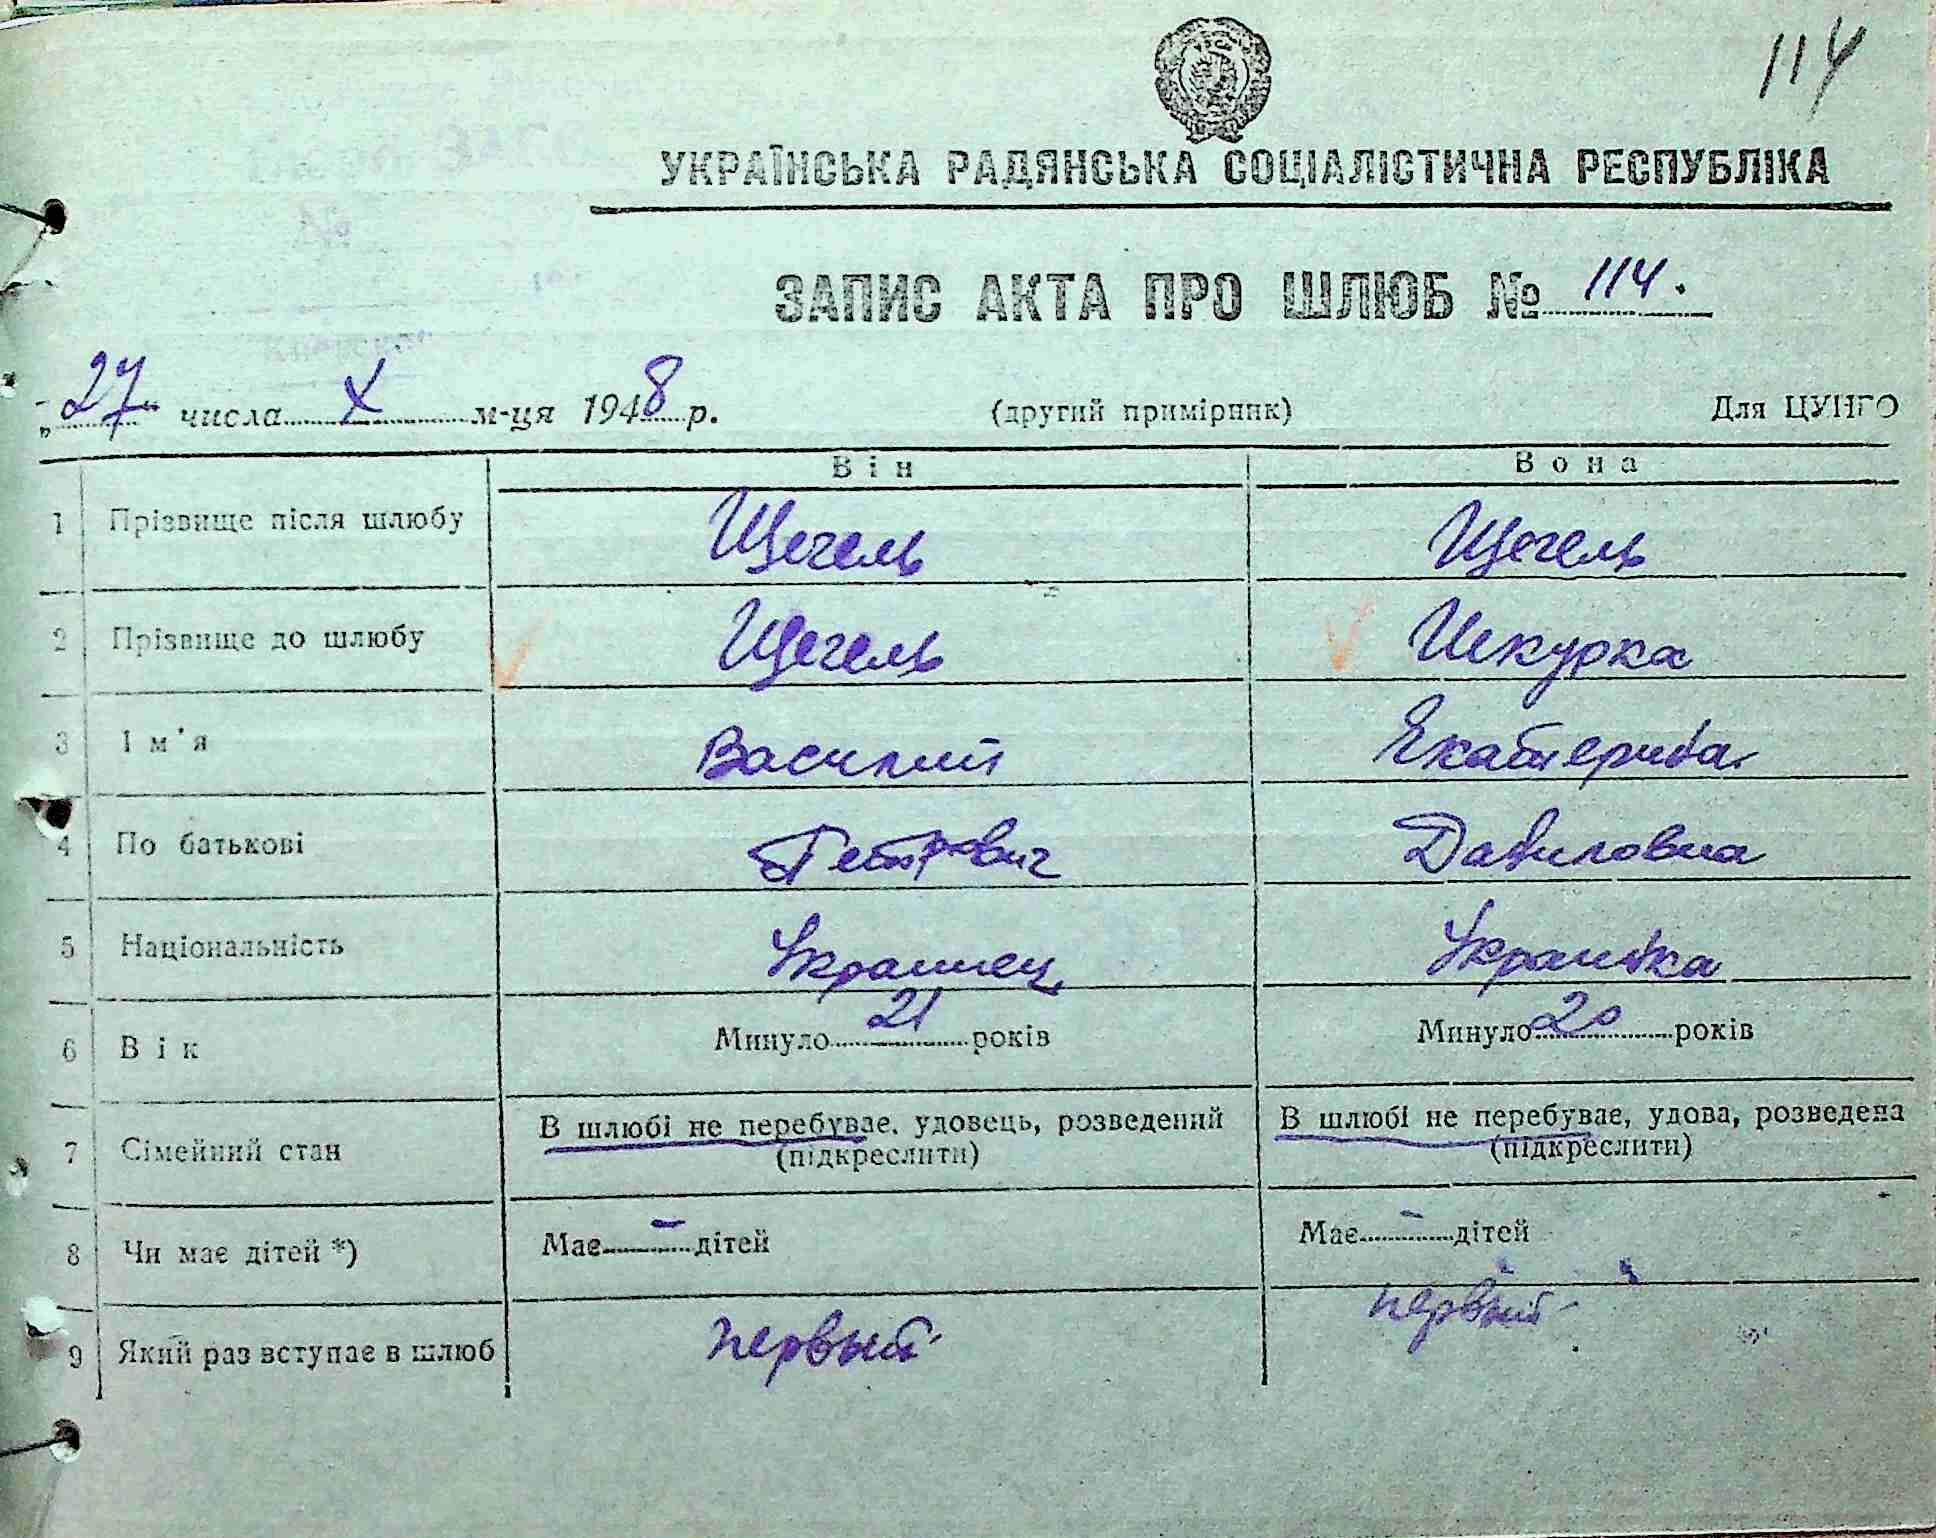 114
УКРАЇНСЬКА РАДЯНСЬКА СОЦІАЛІСТИЧНА РЕСПУБЛІКА
ЗАПИС АКТА ПРО ШЛЮБ № 114.
„27 числа X м-ця 1948 р. (другий примірник) Для ЦУНГО
Він Вона
1 Прізвище після шлюбу Щегель Щегель
2 Прізвище до шлюбу Щегель Шкурка
3 Ім'я Василий Екатерина
4 По батькові Петрович Даниловна
5 Національність Украинец Украинка
6 Вік Минуло 21 років Минуло 20 років
7 Сімейний стан В шлюбі не перебуває, удовець, розведений В шлюбі не перебуває, удова, розведена
(підкреслити) (підкреслити)
8 Чи має дітей *) Має – дітей Має – дітей
9 Який раз вступає в шлюб первый первый